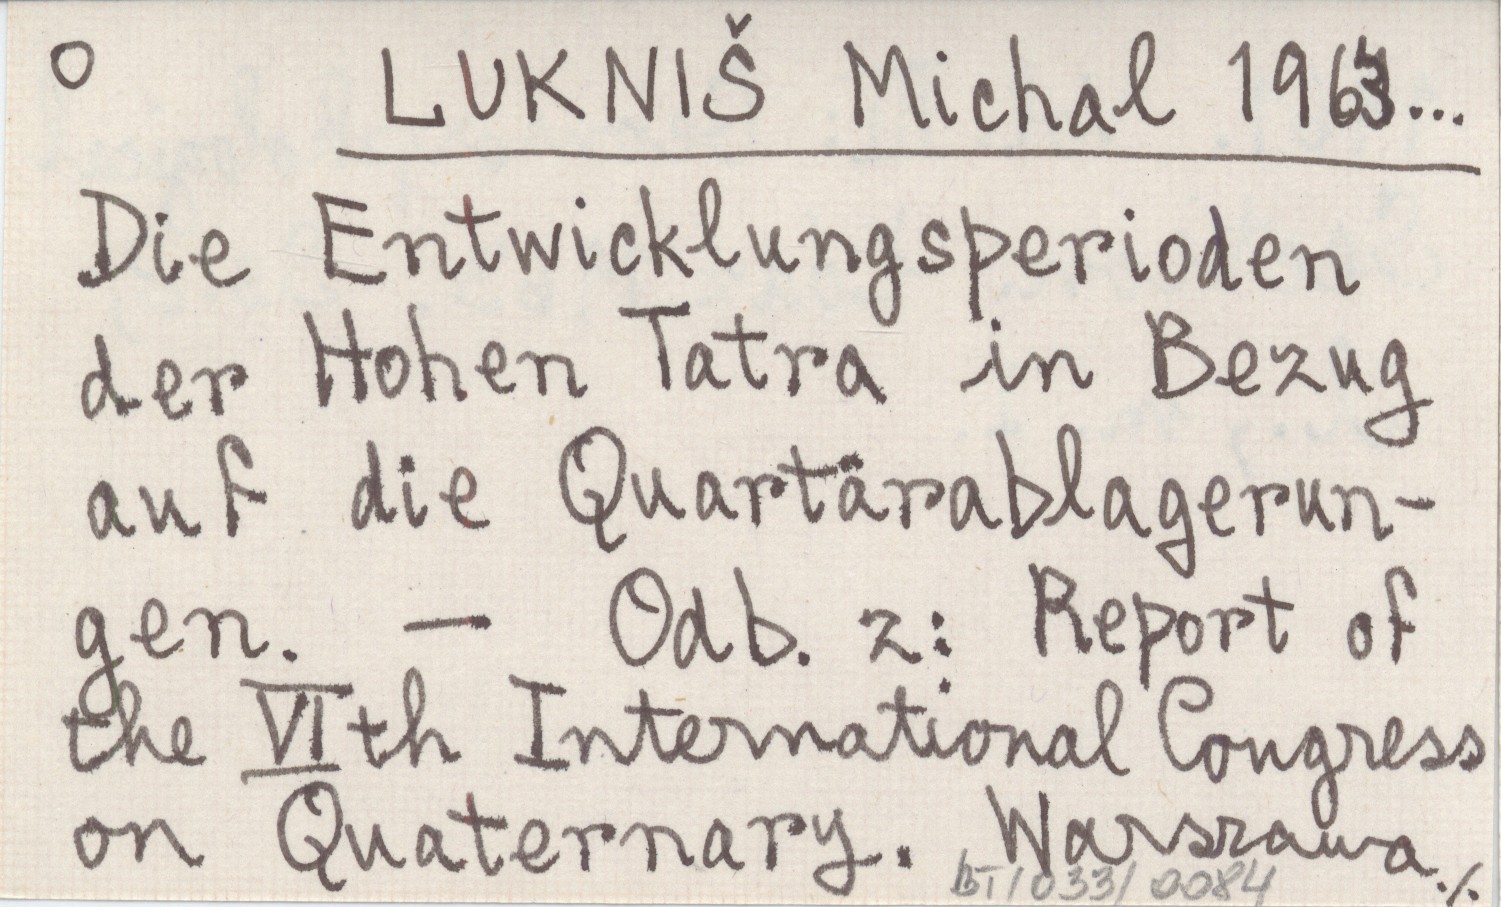 O LUKNIŠ Michal 1963...
Die Entwicklungsperioden
der Hohen Tatra in Bezug
auf die Quartärablagerun-
gen. — Odb. z: Report of
the VIth International Congress
on Quaternary. Warszawa ./.
BT/033/0084